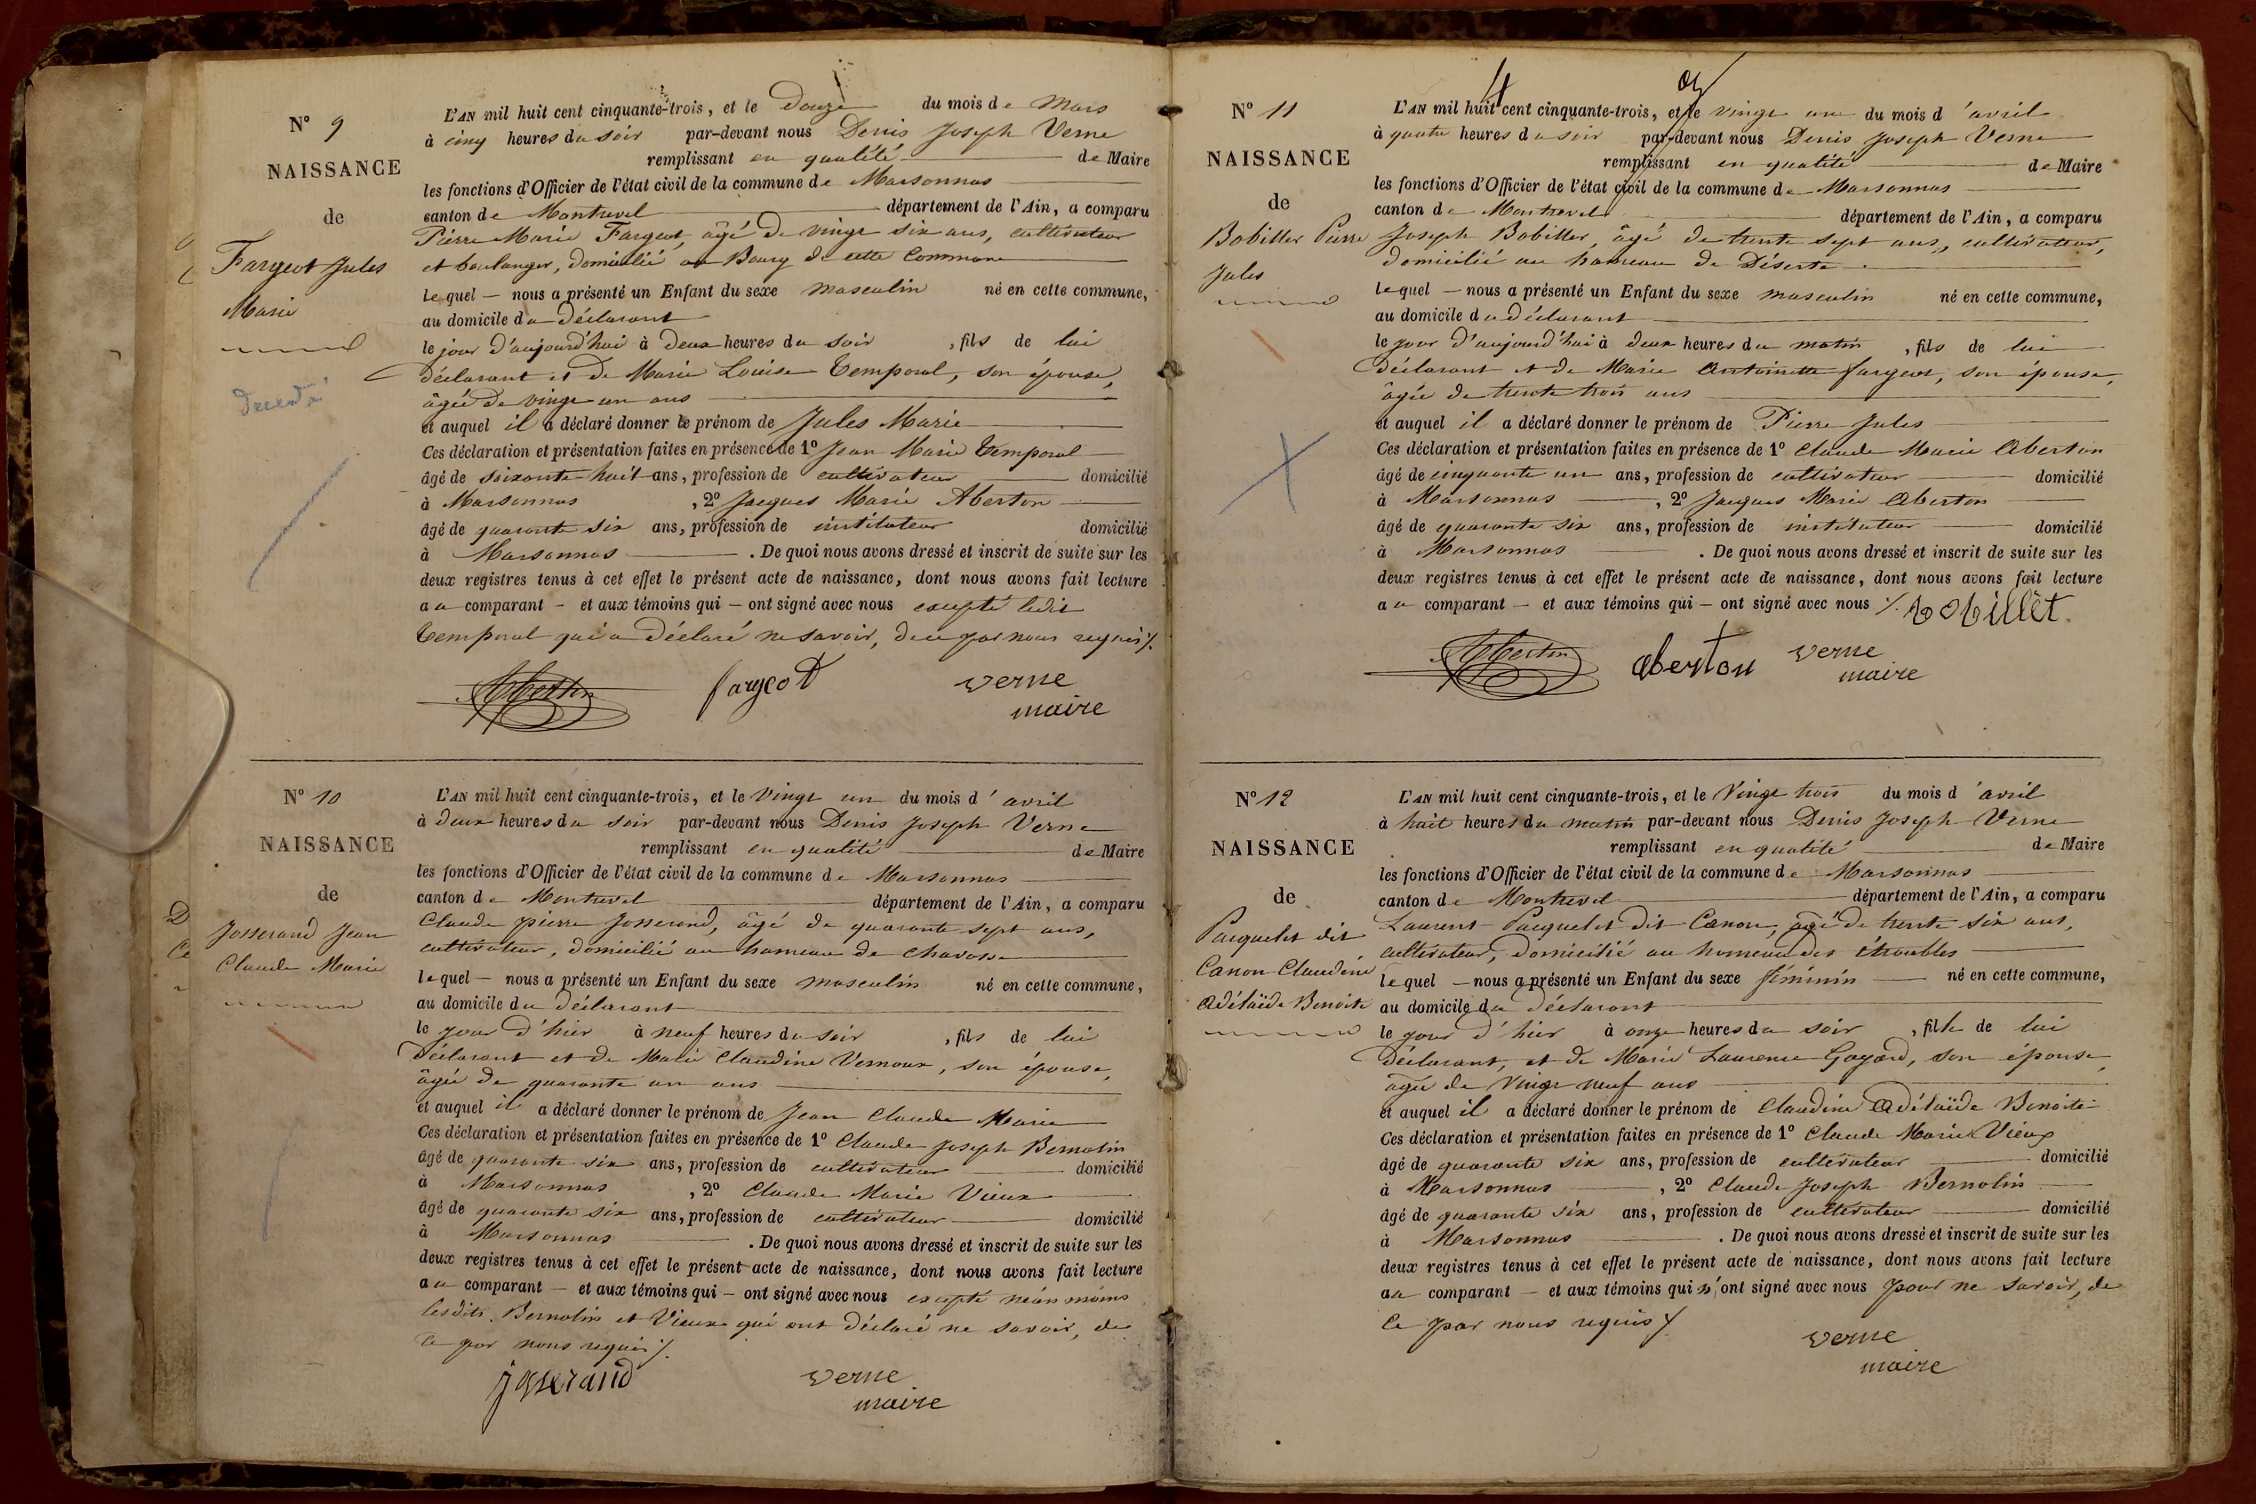 N° 9
NAISSANCE
de
Fargeot Jules
Marie
décédé
L'AN mil huit cent cinquante-trois, et le Douze du mois de Mars
à cinq heures du soir par-devant nous Denis Joseph Verne
remplissant en qualité de Maire
les fonctions d'Officier de l'état civil de la commune de Marsonnas
canton de Montrevel département de l'Ain, a comparu
Pierre Marie Fargeot, âgé de vingt six ans, cultivateur
et boulanger, domicilié au Bourg de cette Commune
lequel – nous a présenté un Enfant du sexe masculin né en cette commune,
au domicile du déclarant
le jour d'aujourd'hui à deux heures du soir, fils de lui
déclarant et de Marie Louise Temporal, son épouse,
âgée de vingt un ans
et auquel il a déclaré donner le prénom de Jules Marie
Ces déclaration et présentation faites en présence de 1° Jean Marie Temporal
âgé de soixante huit ans, profession de cultivateur domicilié
à Marsonnas, 2° Jacques Marie Aberton
âgé de quarante six ans, profession de instituteur domicilié
à Marsonnas. De quoi nous avons dressé et inscrit de suite sur les
deux registres tenus à cet effet le présent acte de naissance, dont nous avons fait lecture
au comparant – et aux témoins qui – ont signé avec nous excepté ledit
Temporal qui a déclaré ne savoir, de ce par nous requis ./.
Aberton fargeot verne
maire
N° 10
NAISSANCE
de
Josserand Jean
Claude Marie
L'AN mil huit cent cinquante-trois, et le vingt un du mois d'avril
à deux heures du soir par-devant nous Denis Joseph Verne
remplissant en qualité de Maire
les fonctions d'Officier de l'état civil de la commune de Marsonnas
canton de Montrevel département de l'Ain, a comparu
Claude pierre Josserand, âgé de quarante sept ans,
cultivateur, domicilié au hameau de Chavosse
lequel – nous a présenté un Enfant du sexe masculin né en cette commune,
au domicile du déclarant
le jour d'hier à neuf heures du soir, fils de lui
déclarant et de Marie Claudine Vernoux, son épouse,
âgée de quarante un ans
et auquel il a déclaré donner le prénom de Jean Claude Marie
Ces déclaration et présentation faites en présence de 1° Claude Joseph Bernolin
âgé de quarante six ans, profession de cultivateur domicilié
à Marsonnas, 2° Claude Marie Vieux
âgé de quarante six ans, profession de cultivateur domicilié
à Marsonnas. De quoi nous avons dressé et inscrit de suite sur les
deux registres tenus à cet effet le présent acte de naissance, dont nous avons fait lecture
au comparant – et aux témoins qui – ont signé avec nous excepté néanmoins
lesdits Bernolin et Vieux qui ont déclaré ne savoir, de
ce par nous requis ./.
josserand verne
maire
N° 11
NAISSANCE
de
Bobillier Pierre
Jules
L'AN mil huit cent cinquante-trois, et le vingt un du mois d'avril
à quatre heures du soir par-devant nous Denis Joseph Verne
remplissant en qualité de Maire
les fonctions d'Officier de l'état civil de la commune de Marsonnas
canton de Montrevel département de l'Ain, a comparu
Joseph Bobillier, âgé de trente sept ans, cultivateur,
domicilié au hameau de Déserte
lequel – nous a présenté un Enfant du sexe masculin né en cette commune,
au domicile du déclarant
le jour d'aujourd'hui à deux heures du matin, fils de lui
déclarant et de Marie Antoinette fargeot, son épouse,
âgée de trente trois ans
et auquel il a déclaré donner le prénom de Pierre Jules
Ces déclaration et présentation faites en présence de 1° Claude Marie Aberton
âgé de cinquante un ans, profession de cultivateur domicilié
à Marsonnas, 2° Jacques Marie Aberton
âgé de quarante six ans, profession de instituteur domicilié
à Marsonnas. De quoi nous avons dressé et inscrit de suite sur les
deux registres tenus à cet effet le présent acte de naissance, dont nous avons fait lecture
au comparant – et aux témoins qui – ont signé avec nous ./. bobillét
Aberton aberton verne
maire
N° 12
NAISSANCE
de
Paquelet dit
Canon Claudine
Adélaïde Benoite
L'AN mil huit cent cinquante-trois, et le Vingt trois du mois d'avril
à huit heures du matin par-devant nous Denis Joseph Verne
remplissant en qualité de Maire
les fonctions d'Officier de l'état civil de la commune de Marsonnas
canton de Montrevel département de l'Ain, a comparu
Laurent Paquelet dit Canon, âgé de trente six ans,
cultivateur, domicilié au hameau des étroubles
lequel – nous a présenté un Enfant du sexe féminin né en cette commune,
au domicile du déclarant
le jour d'hier à onze heures du soir, fille de lui
déclarant, et de Marie Laurence Goyard, son épouse,
âgée de Vingt neuf ans
et auquel il a déclaré donner le prénom de Claudine Adélaïde Benoite
Ces déclaration et présentation faites en présence de 1° Claude Marie Vieux
âgé de quarante six ans, profession de cultivateur domicilié
à Marsonnas, 2° Claude Joseph Bernolin
âgé de quarante six ans, profession de cultivateur domicilié
à Marsonnas. De quoi nous avons dressé et inscrit de suite sur les
deux registres tenus à cet effet le présent acte de naissance, dont nous avons fait lecture
au comparant – et aux témoins qui n'ont signé avec nous pour ne savoir, de
ce par nous requis ./.
verne
maire